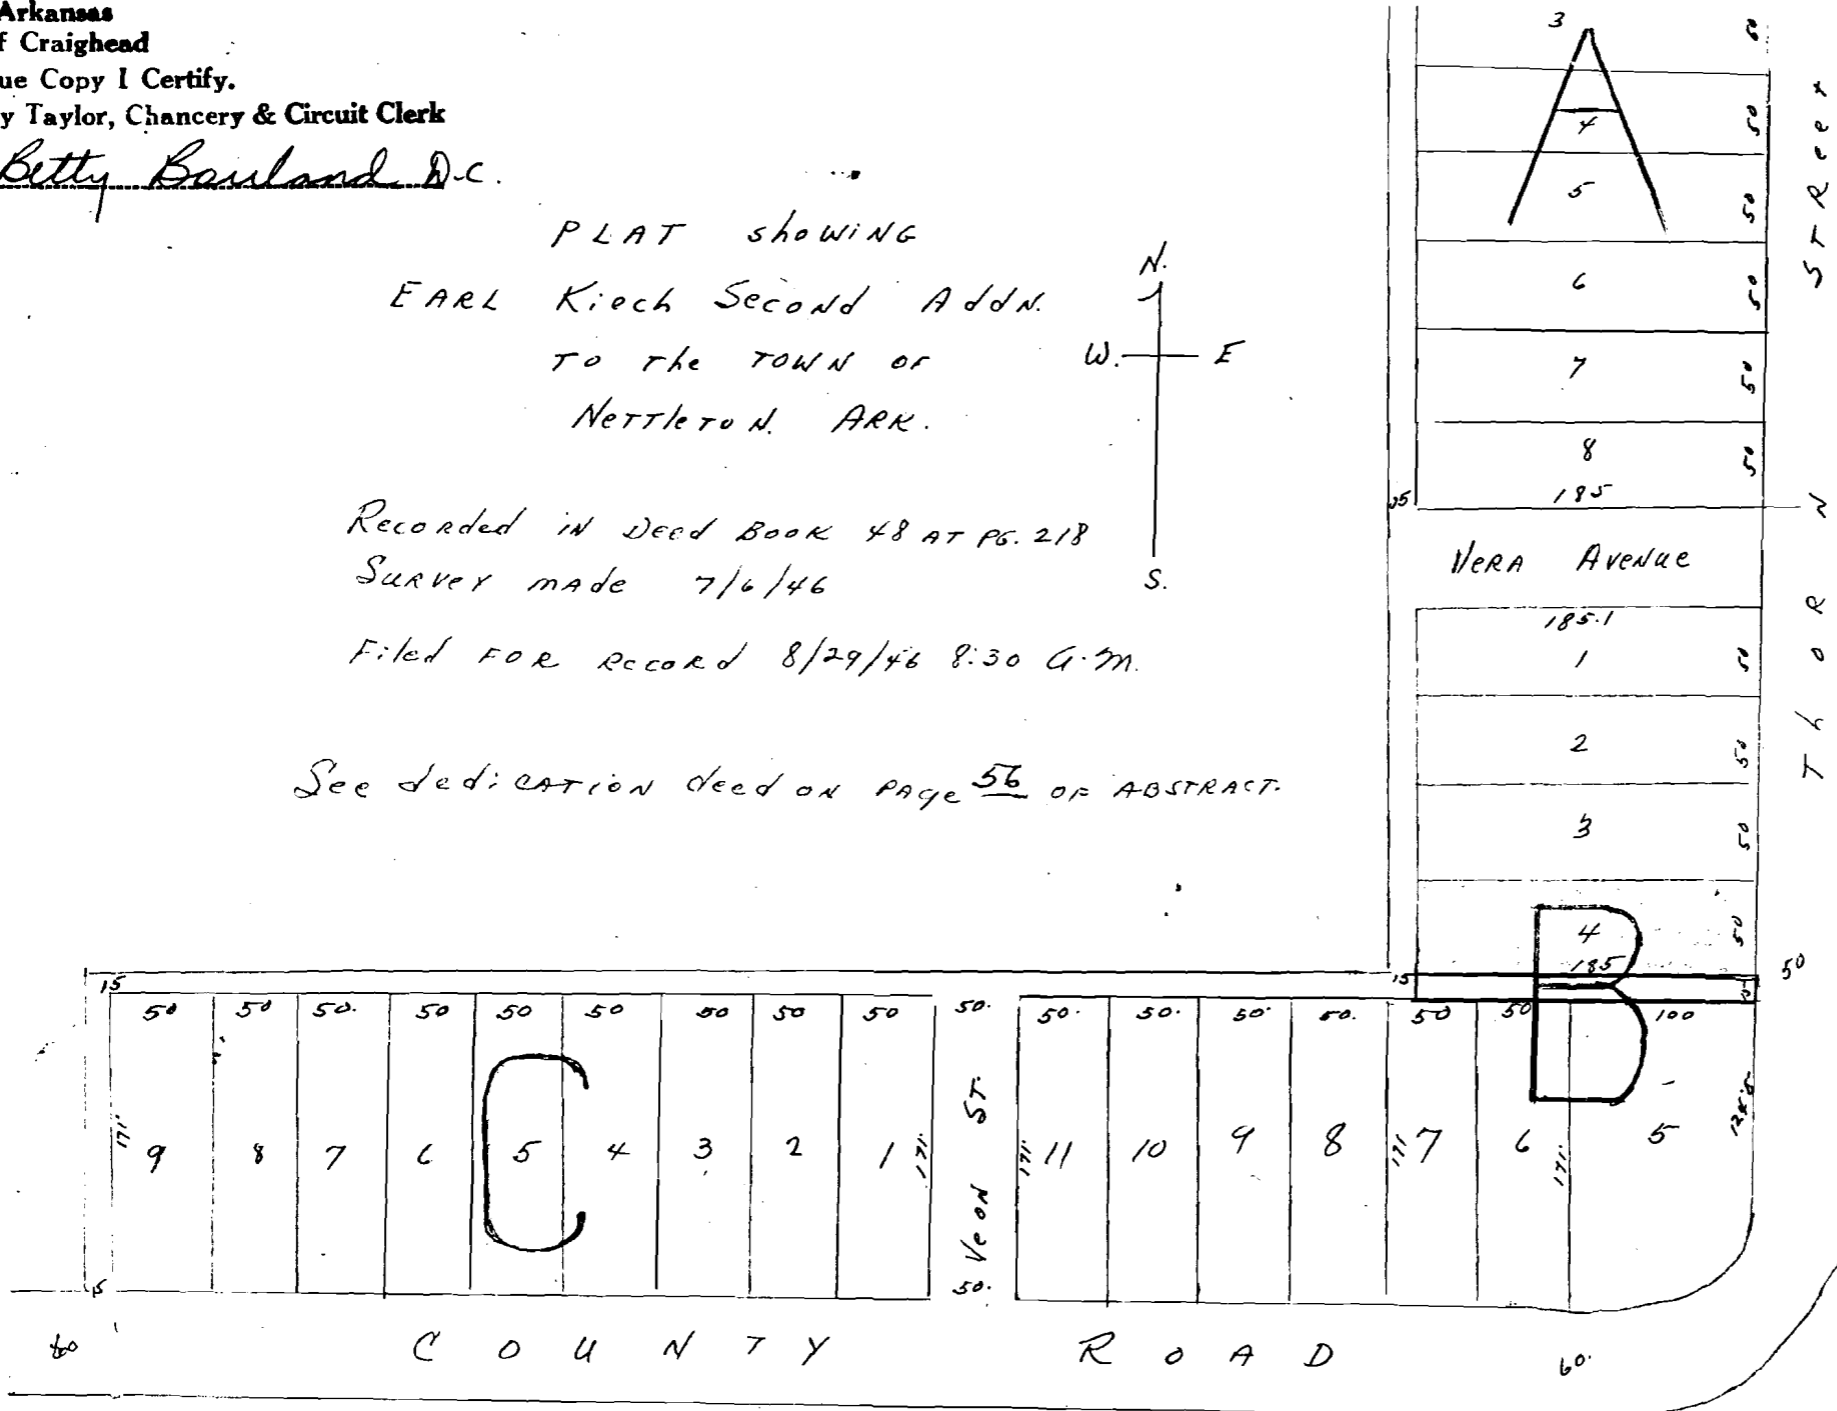 Arkansas
f Craighead
ue Copy I Certify.
y Taylor, Chancery & Circuit Clerk
Betty D.C.
PLAT showing
EARL Kiech Second Addn.
To the Town of
Nettleton. Ark.
N.
W. E
S.
Recorded in Deed Book 48 at PG. 218
Survey made 7/6/46
Filed for record 8/29/46 8:30 A.M.
See dedication deed on page 56 of abstract.
3 50
A
4 50
5 50
6 50
7 50
8 50
185
Vera Avenue
185.1
1 50
2 50
3 50
4 50
185
B
Thorn Street
50
15
15
50 50 50. 50 50 50 50 50 50 50. 50. 50. 50. 50. 50 50 100
171' 9 8 7 6 5 4 3 2 1 171'
C
Veon St.
50.
171' 11 10 9 8 171' 7 6 171' 5
60 County Road 60.